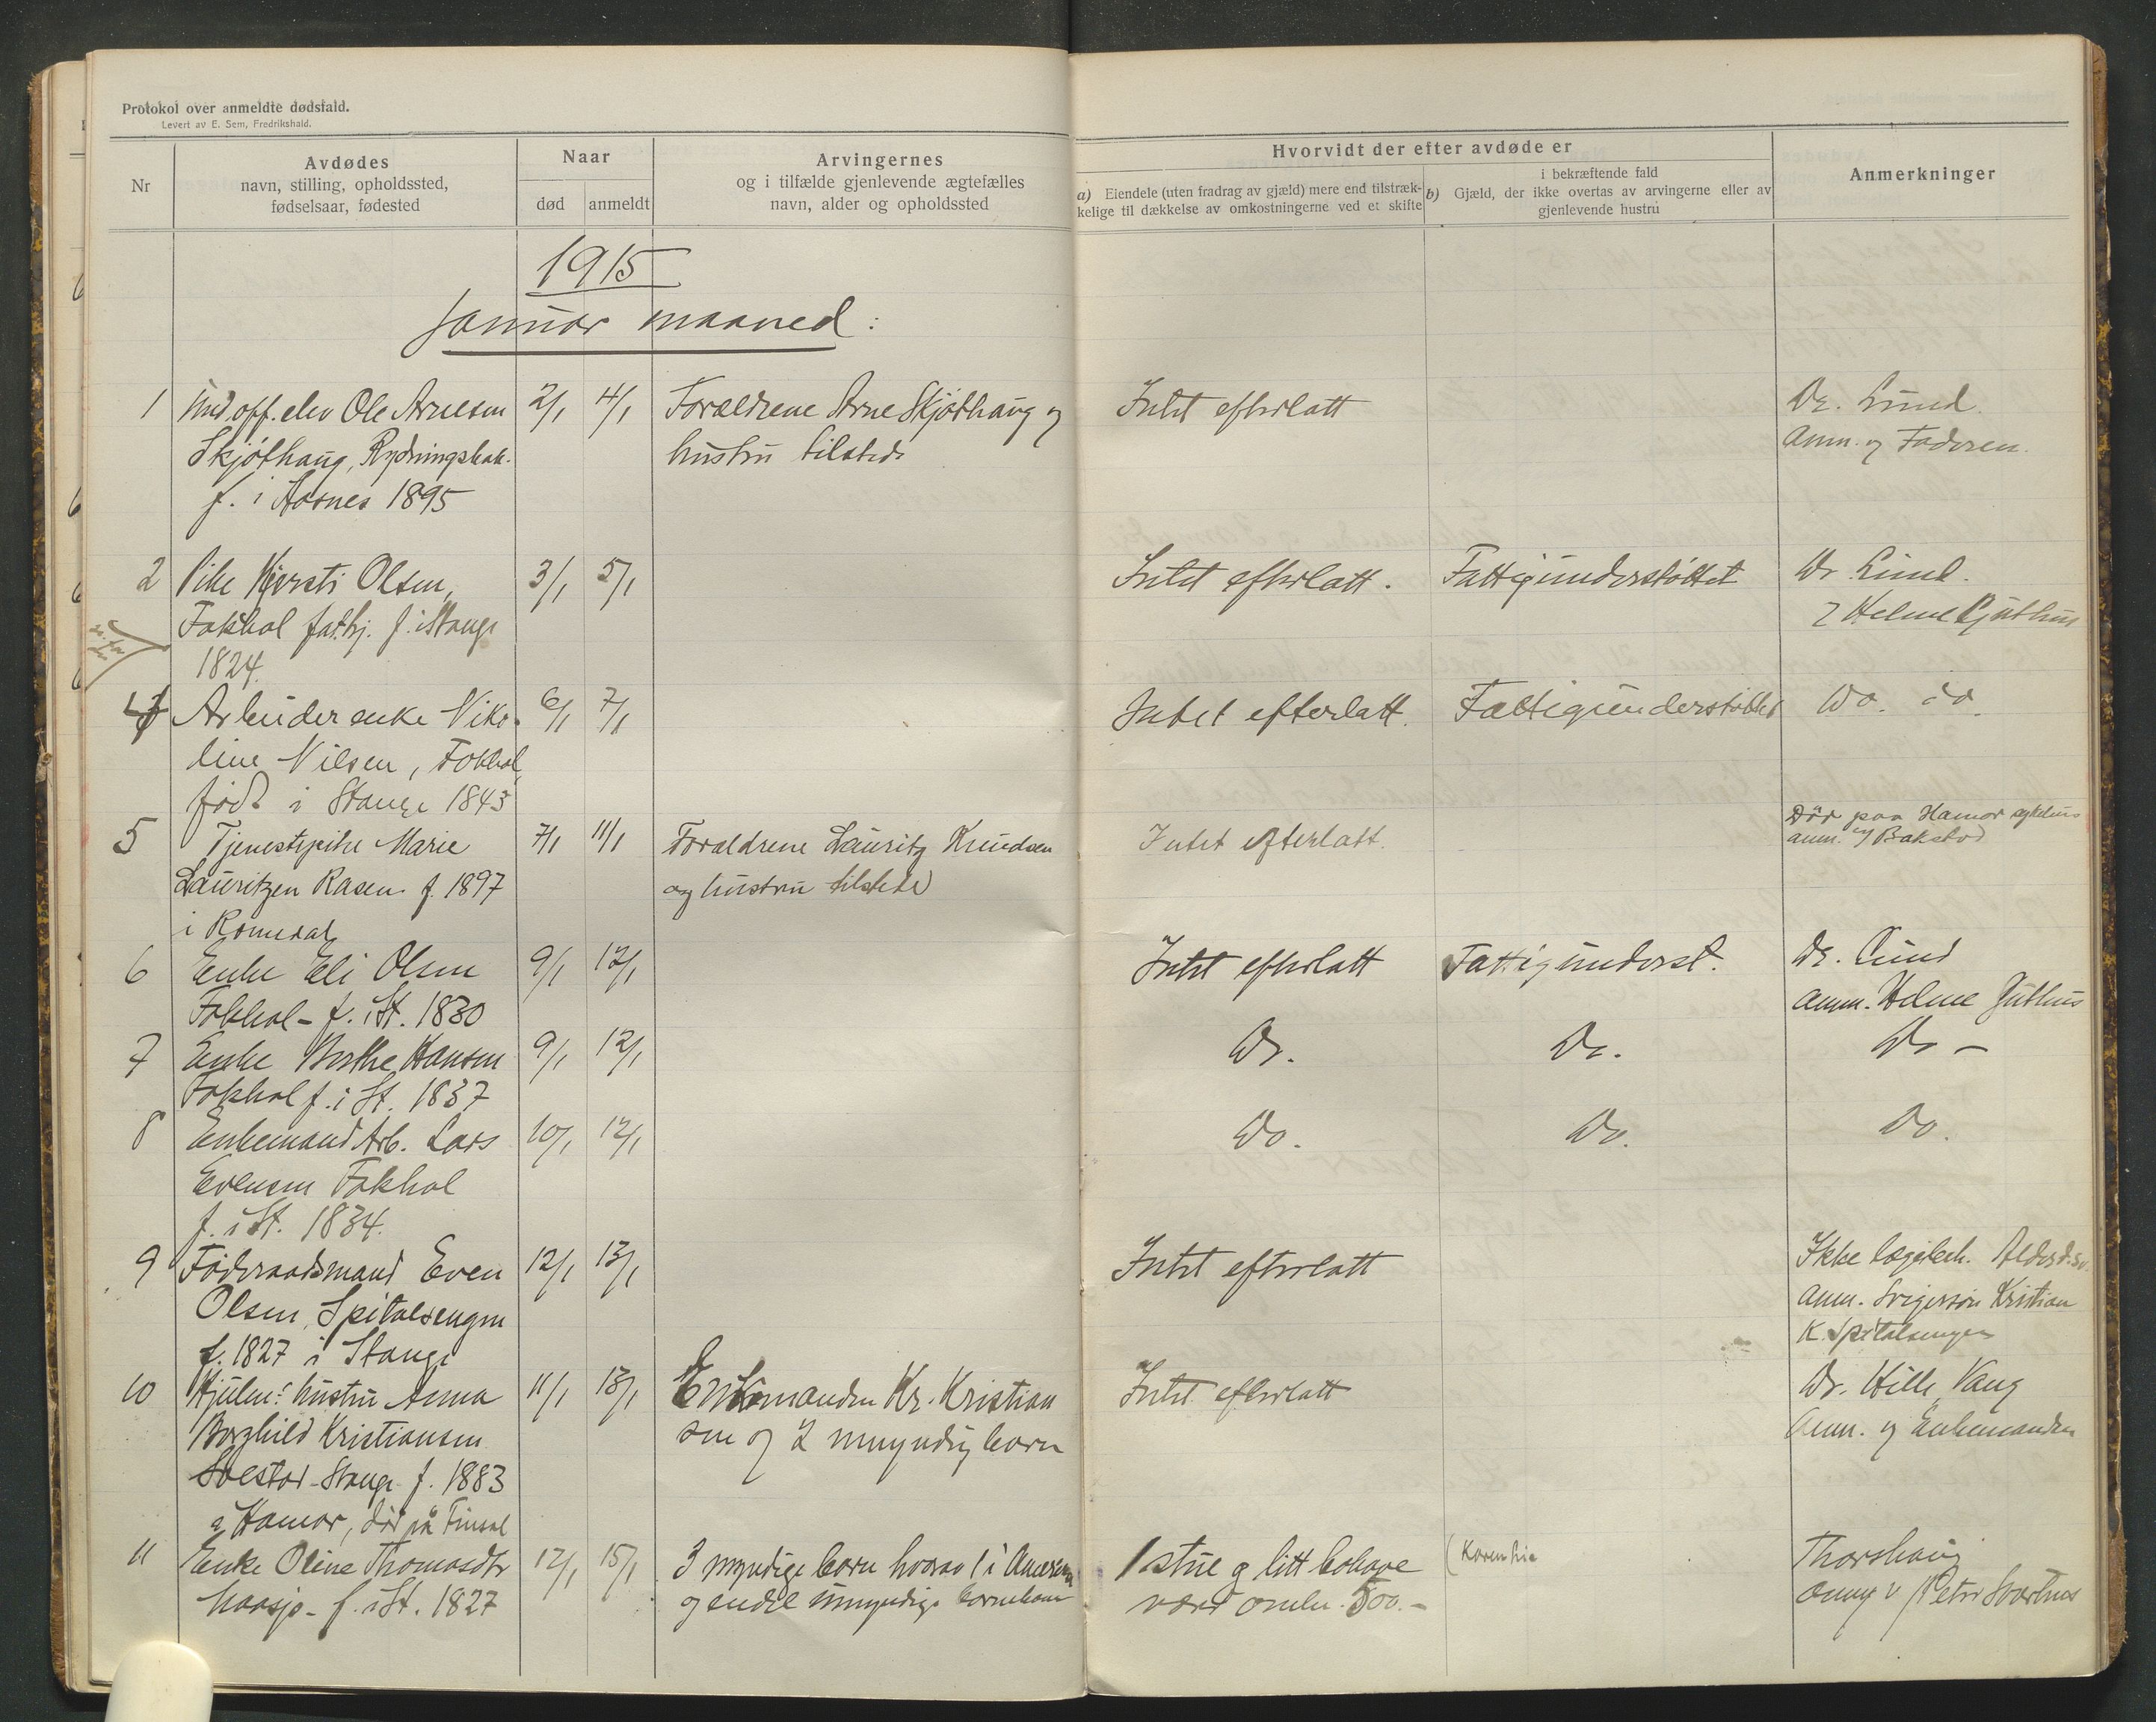 Protokol over anmeldte dødsfald.
Levert av E. Sem, Fredrikshald.
Nr
Avdødes
navn, stilling, opholdssted,
fødselsaar, fødested
Naar
død
anmeldt
Arvingernes
og i tilfælde gjenlevende ægtefælles
navn, alder og opholdssted
Hvorvidt der efter avdøde er
a) Eiendele (uten fradrag av gjæld) mere end tilstræk-
kelige til dækkelse av omkostningerne ved et skifte
i bekræftende fald
b) Gjæld, der ikke overtas av arvingerne eller av
gjenlevende hustru
Anmerkninger
1915
Januar maaned:
1 Und.off. elev Ole Arnesen 2/1 4/1 Forældrene Arne Skjøthaug og Intet efterlatt Dr. Lund.
Skjøthaug, hustru tilstede anm. og Faderen.
f. i Aasnes 1895
2 Pike Kjersti Olsen, 3/1 5/1 Intet efterlatt. Fattigunderstøttet Dr Lund.
Fokhol fathj. f. i Stange Helme
1824.
4 Arbeider enke Niko- 6/1 7/1 Intet efterlatt. Fattigunderstøttet Do. do.
line Nilsen, Fokhol,
født i Stange 1843
5 Tjenestepike Marie 7/1 11/1 Forældrene Lauritz Knudsen Intet efterlatt. Død paa Hamar sykehus
Lauritzen Rasen f. 1897 og hustru tilstede anm. af Bakstad
i Romedal
6 Enke Eli Olsen 9/1 12/1 Intet efterlatt Fattigunderst. Dr. Lund
Fokhol - f. i St. 1830 anm. Helme
7 Enke Berthe Hansen 9/1 12/1 Do. Do. Do -
Fokhol f. i St. 1837
8 Enkemand Arb. Lars 10/1 12/1 Do. Do. Do.
Evensen Fokhol
f. i St. 1834.
9 Føderaadsmand Even 12/1 13/1 Intet efterlatt Ikke lægebeh.
Olsen, Spitalsengen anm. Svigersøn Kristian
f. 1827 i Stange K. Spitalsengen
10 hustru Anna 11/1 13/1 Enkemanden Kr. Kristian Intet efterlatt Dr. Hille Vang
Borghild Kristiansen sen og 2 umyndig børn Anm. og Enkemanden
Stange f. 1883
i Hamar, død på Finsal
11 Enke Oline Thomasdtr 12/1 15/1 3 myndige børn hvorav 1 i Amerika 1 stue og litt bohave Thorshaug
f. i St. 1827 og endel umyndige børnebørn værd omtr. 500.- Petr